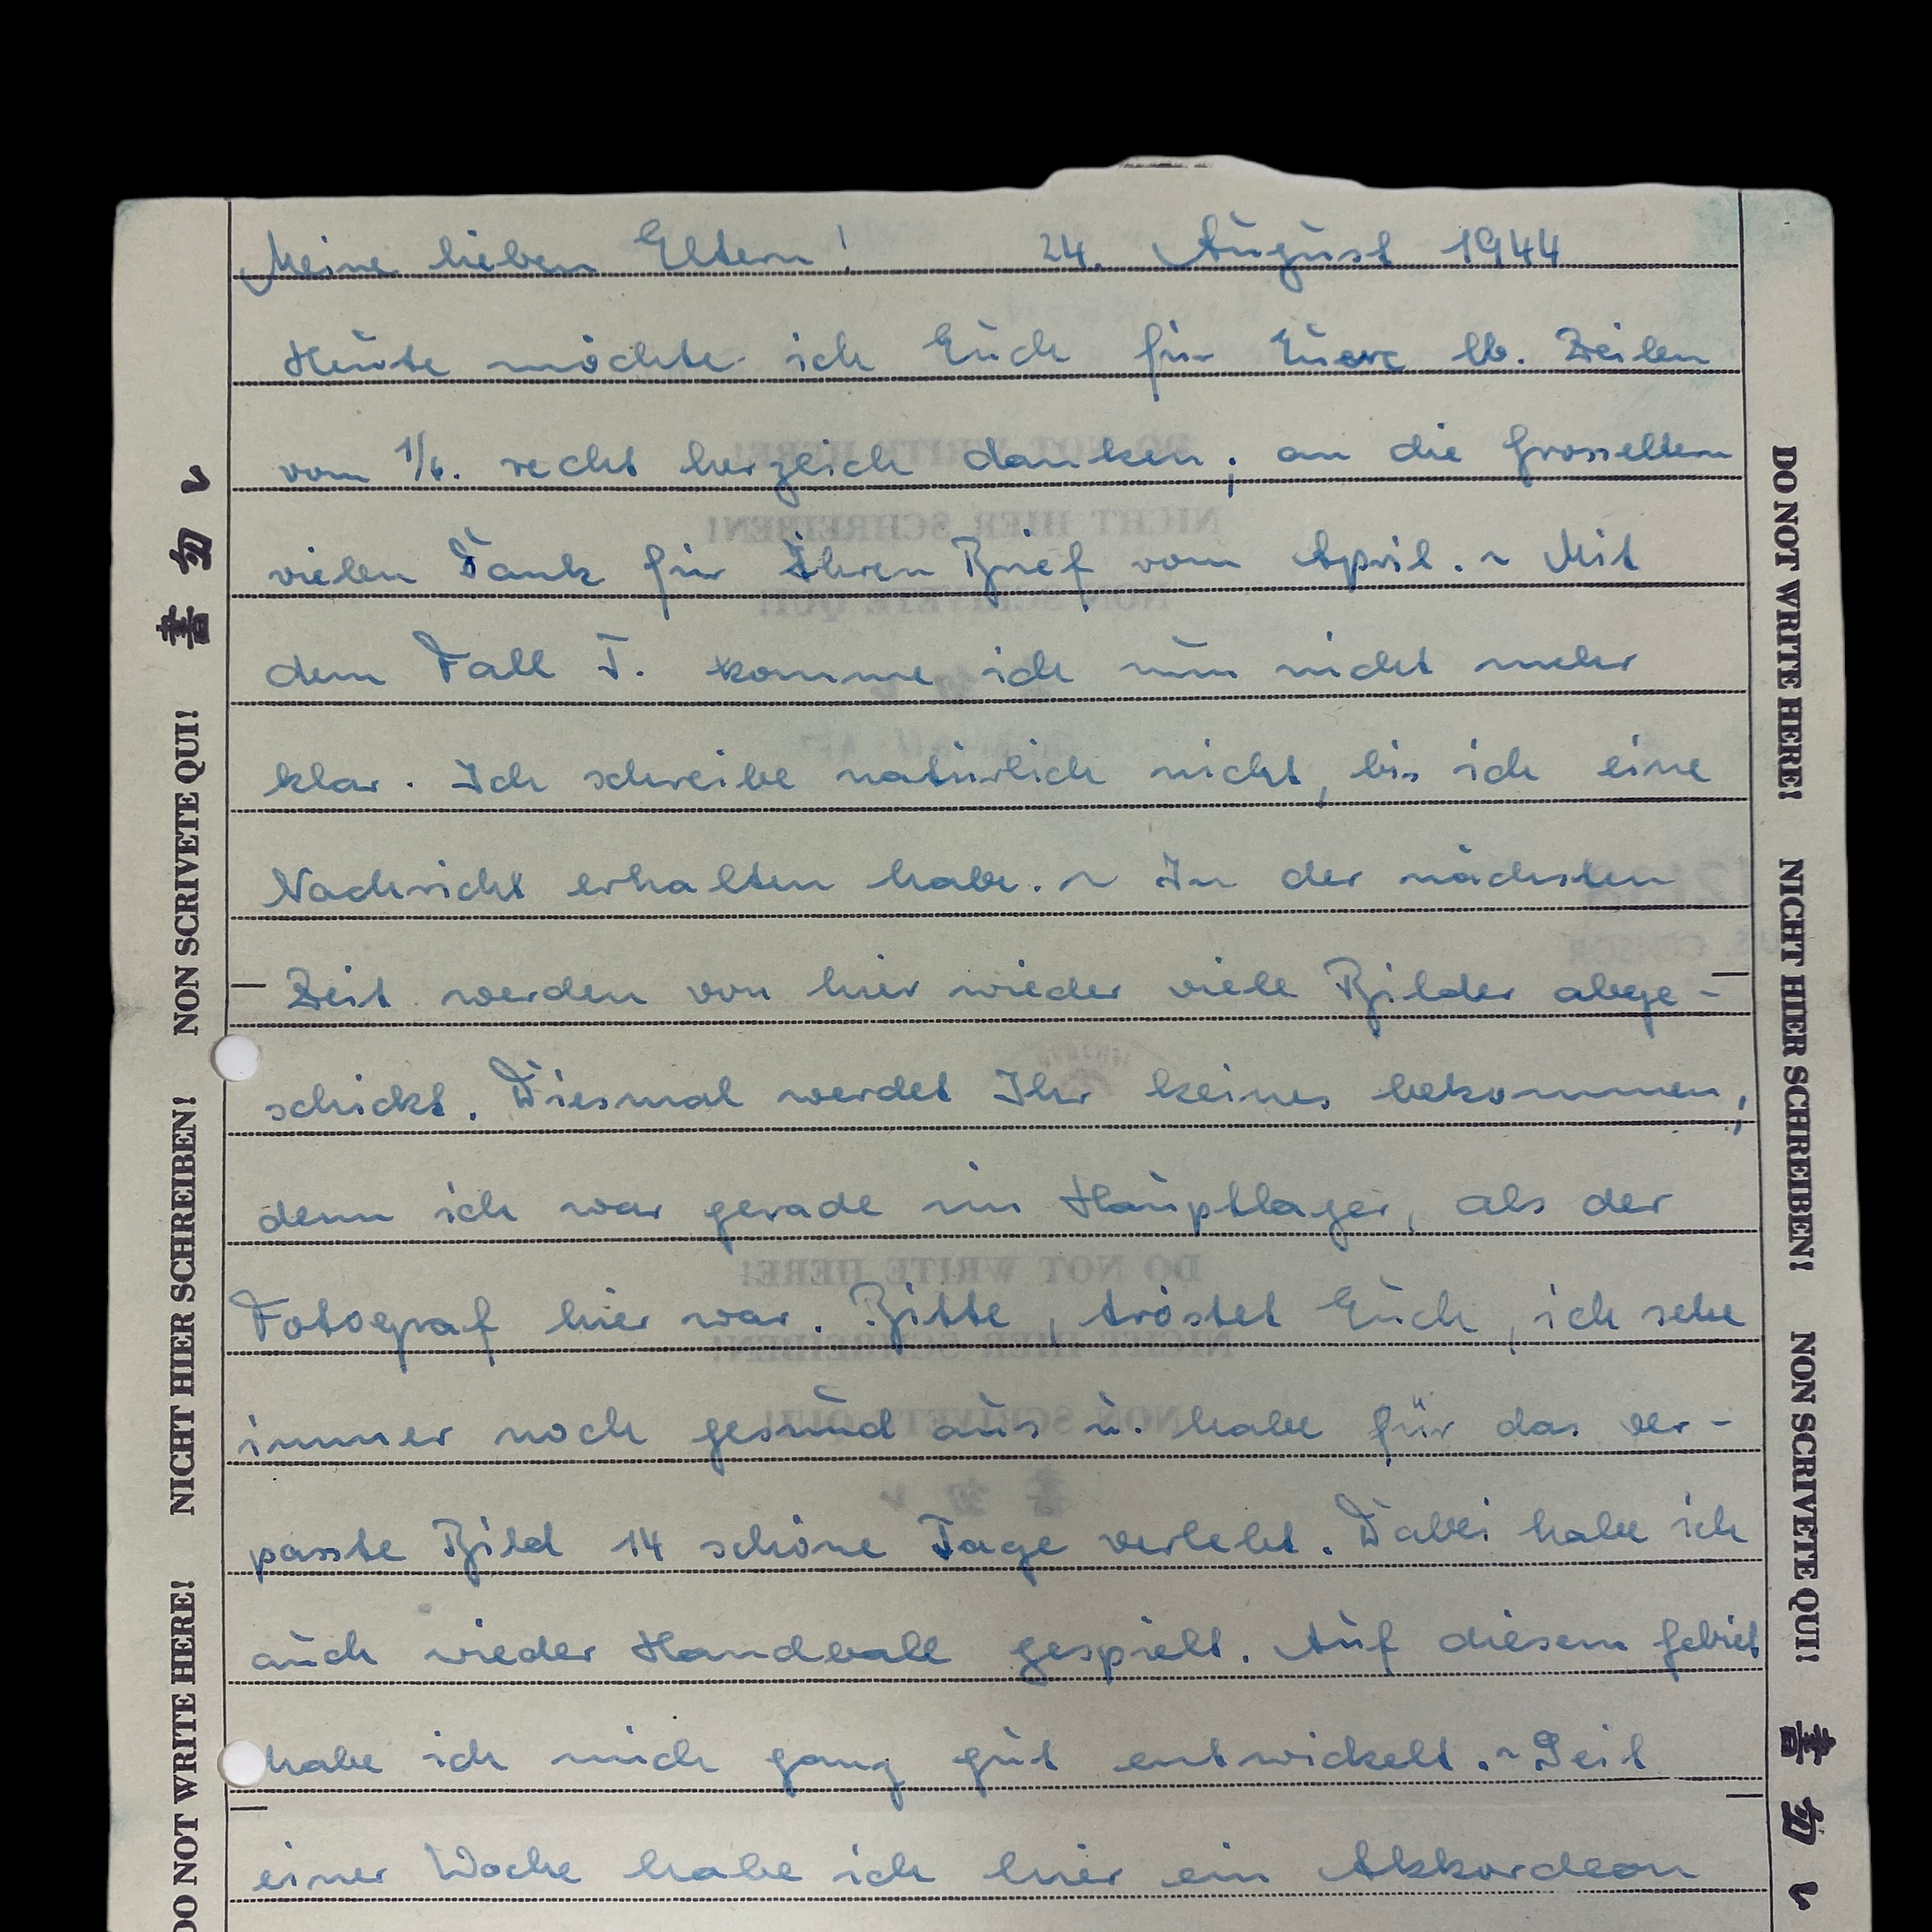 Meine lieben Eltern! 24. August 1944
Heute möchte ich Euch für Euere lb. Zeilen
vom 1/6. recht herzlich danken; an die Grosseltern
vielen Dank für Ihren Brief vom April. ~ Mit
dem Fall T. komme ich nun nicht mehr
klar. Ich schreibe natürlich nicht, bis ich eine
Nachricht erhalten habe. ~ In der nächsten
Zeit werden von hier wieder viele Bilder abge-
schickt. Diesmal werdet Ihr keines bekommen,
denn ich war gerade im Hauptlager, als der
Fotograf hier war. Bitte, tröstet Euch, ich sehe
immer noch gesund aus u. habe für das ver-
passte Bild 14 schöne Tage verlebt. Dabei habe ich
auch wieder Handball gespielt. Auf diesem Gebiet
habe ich mich ganz gut entwickelt. ~ Seit
einer Woche habe ich hier ein Akkordeon
DO NOT WRITE HERE! NICHT HIER SCHREIBEN! NON SCRIVETE QUI! 書勿レ
DO NOT WRITE HERE! NICHT HIER SCHREIBEN! NON SCRIVETE QUI! 書勿レ